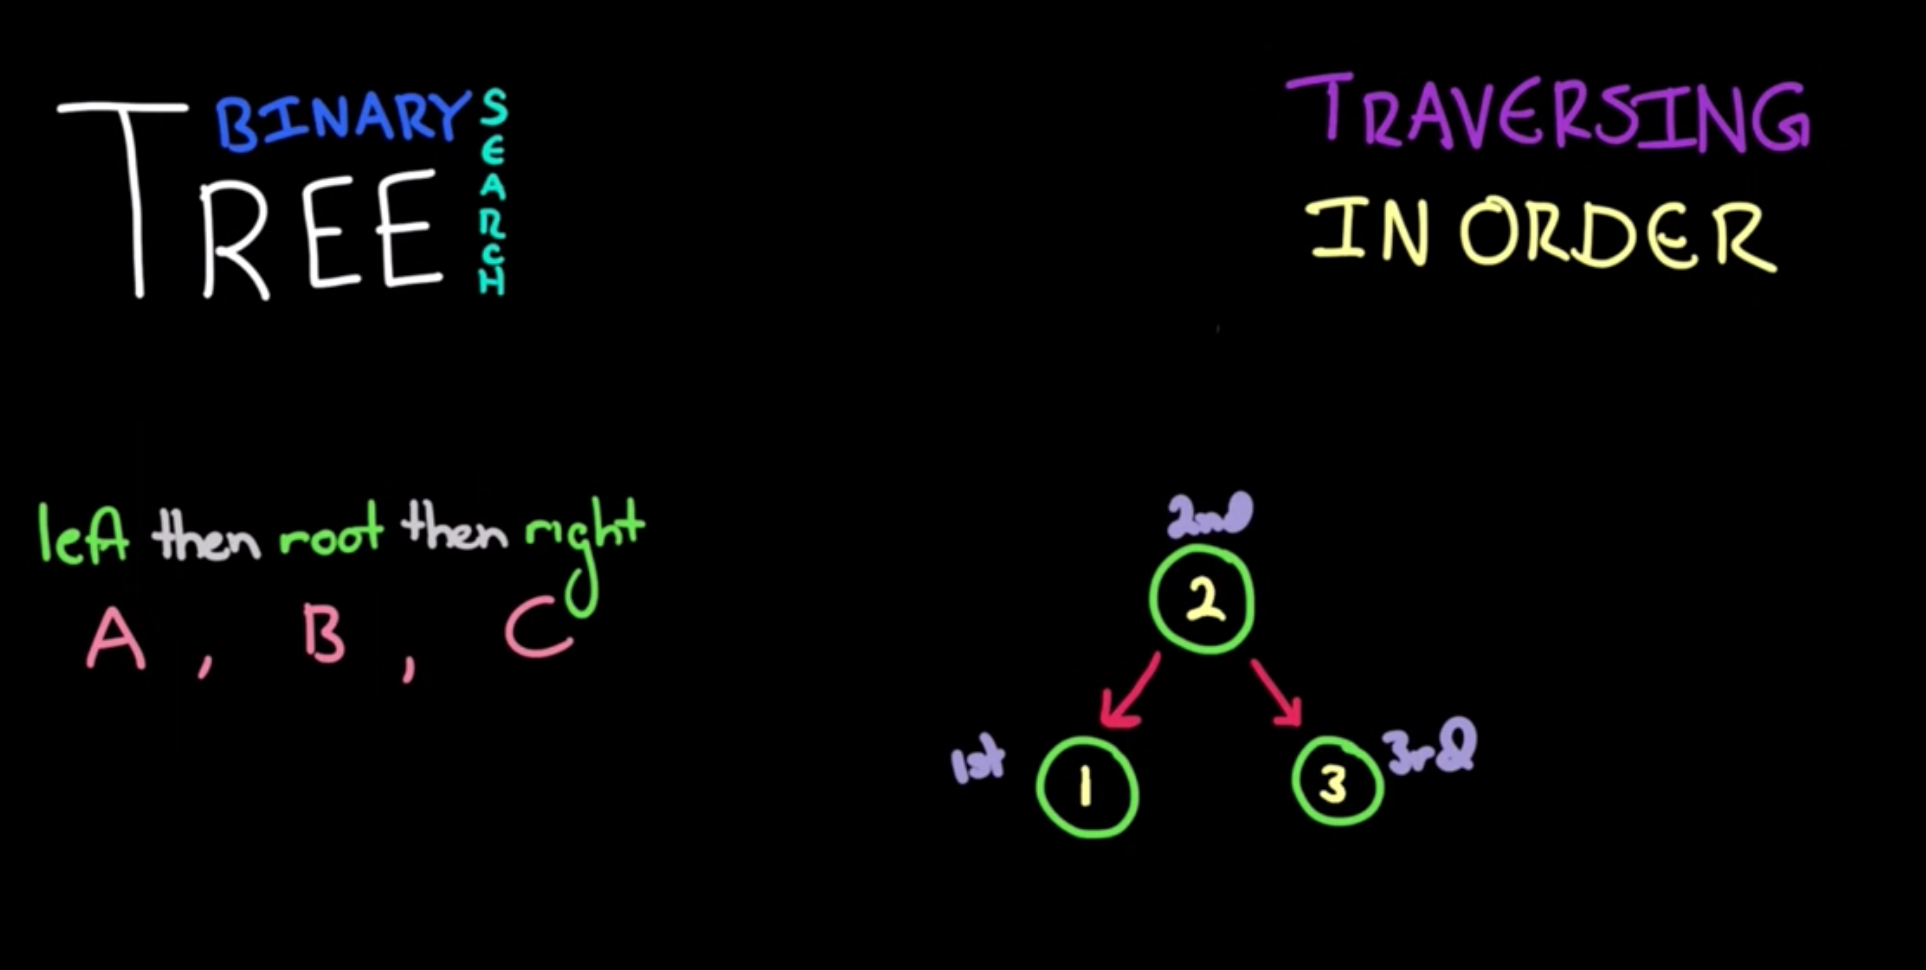 BINARY
TREE
SEARCH
TRAVERSING
IN ORDER
left then root then right
A , B , C
2nd
2
1st
1
3
3rd